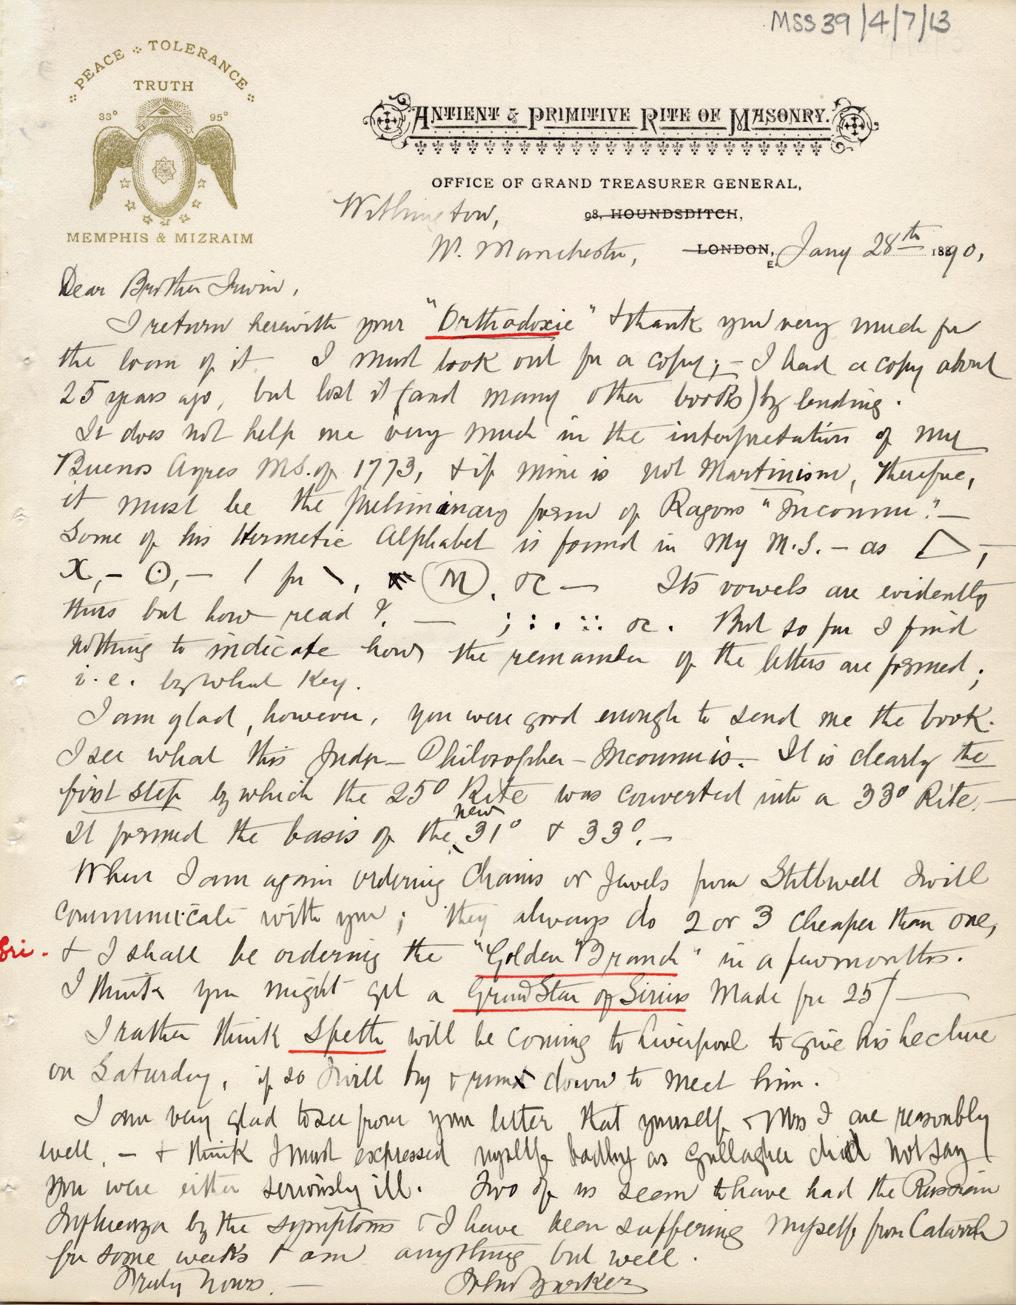 MSS 39/4/7/13
PEACE ∴ TOLERANCE
TRUTH
33° 95°
MEMPHIS & MIZRAIM
ANTIENT & PRIMITIVE RITE OF MASONRY.
OFFICE OF GRAND TREASURER GENERAL,
Withington, 98, HOUNDSDITCH,
W. Manchester, LONDON, E. Jany 28th 1890.
Dear Brother Irwin,
I return herewith your "Orthodoxie" & thank you very much for
the loan of it. I must look out for a copy; - I had a copy about
25 years ago, but lost it (and many other books) by lending.
It does not help me very much in the interpretation of my
Buenos Ayres MS. of 1773, & if mine is not Martinism, therefore,
it must be the preliminary form of Ragons "Inconnu". -
Some of his Hermetic Alphabet is found in my M.S. - as △, -
X, - ⊙, - / for \, (M), &c - Its vowels are evidently
thus but how read? - ; : . :: &c. But so far I find
nothing to indicate how the remainder of the letters are formed;
i.e. by what key.
I am glad, however, you were good enough to send me the book.
I see what this Judge - Philosopher - Inconnu is. - It is clearly the
first step by which the 25° Rite was converted into a 33° Rite. -
It formed the basis of the new 31° & 33°. -
When I am again ordering Chains or Jewels from Stillwell I will
communicate with you; they always do 2 or 3 cheaper than one,
Sri. - & I shall be ordering the "Golden Branch" in a few months.
I think you might get a Grand Star of Sirius made for 25/-
I rather think Speth will be coming to Liverpool to give his Lecture
on Saturday, if so I will try & run down to meet him.
I am very glad to see from your letter that yourself & Mrs I are reasonably
well, - & think I must expressed myself badly as Gallagher did not say
you were either seriously ill. Two of us seem to have had the Russian
Influenza by the symptoms & I have been suffering myself from Catarrh
for some weeks & am anything but well.
Truly Yours. - John Yarker